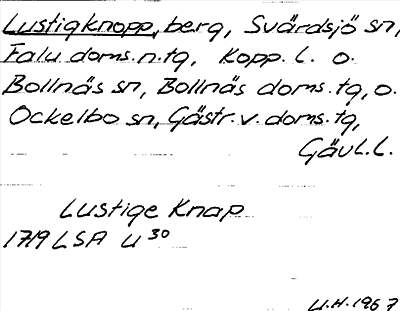 Lustigknopp, berg, Svärdsjö sn,
Falu doms.n.tg, Kopp. l. o.
Bollnäs sn, Bollnäs doms.tg, o.
Ockelbo sn, Gästr.v.doms.tg,
Gävl.l.
Lustige Knap
1719 LSA U 30
U.H. 1967